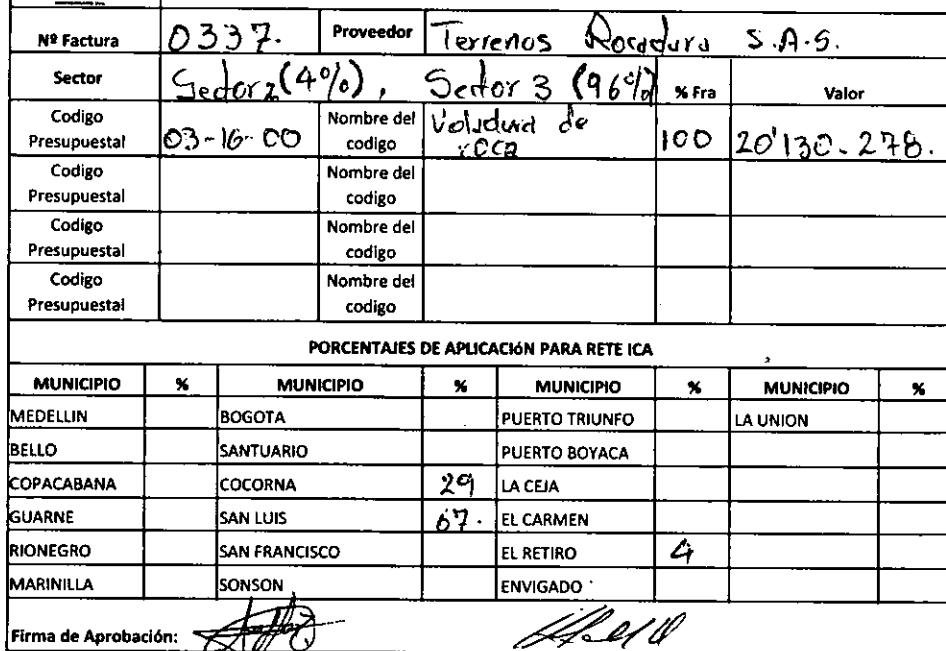 Nº Factura 0337. Proveedor Terrenos Rocadura S.A.S.
Sector Sector 2 (4%), Sector 3 (96%) % Fra Valor
Codigo Presupuestal 03-16-00 Nombre del codigo Voladura de roca 100 20'130.278.
Codigo Presupuestal Nombre del codigo
Codigo Presupuestal Nombre del codigo
Codigo Presupuestal Nombre del codigo
PORCENTAJES DE APLICACIÓN PARA RETE ICA
MUNICIPIO % MUNICIPIO % MUNICIPIO % MUNICIPIO %
MEDELLIN BOGOTA PUERTO TRIUNFO LA UNION
BELLO SANTUARIO PUERTO BOYACA
COPACABANA COCORNA 29 LA CEJA
GUARNE SAN LUIS 67. EL CARMEN
RIONEGRO SAN FRANCISCO EL RETIRO 4
MARINILLA SONSON ENVIGADO
Firma de Aprobación: